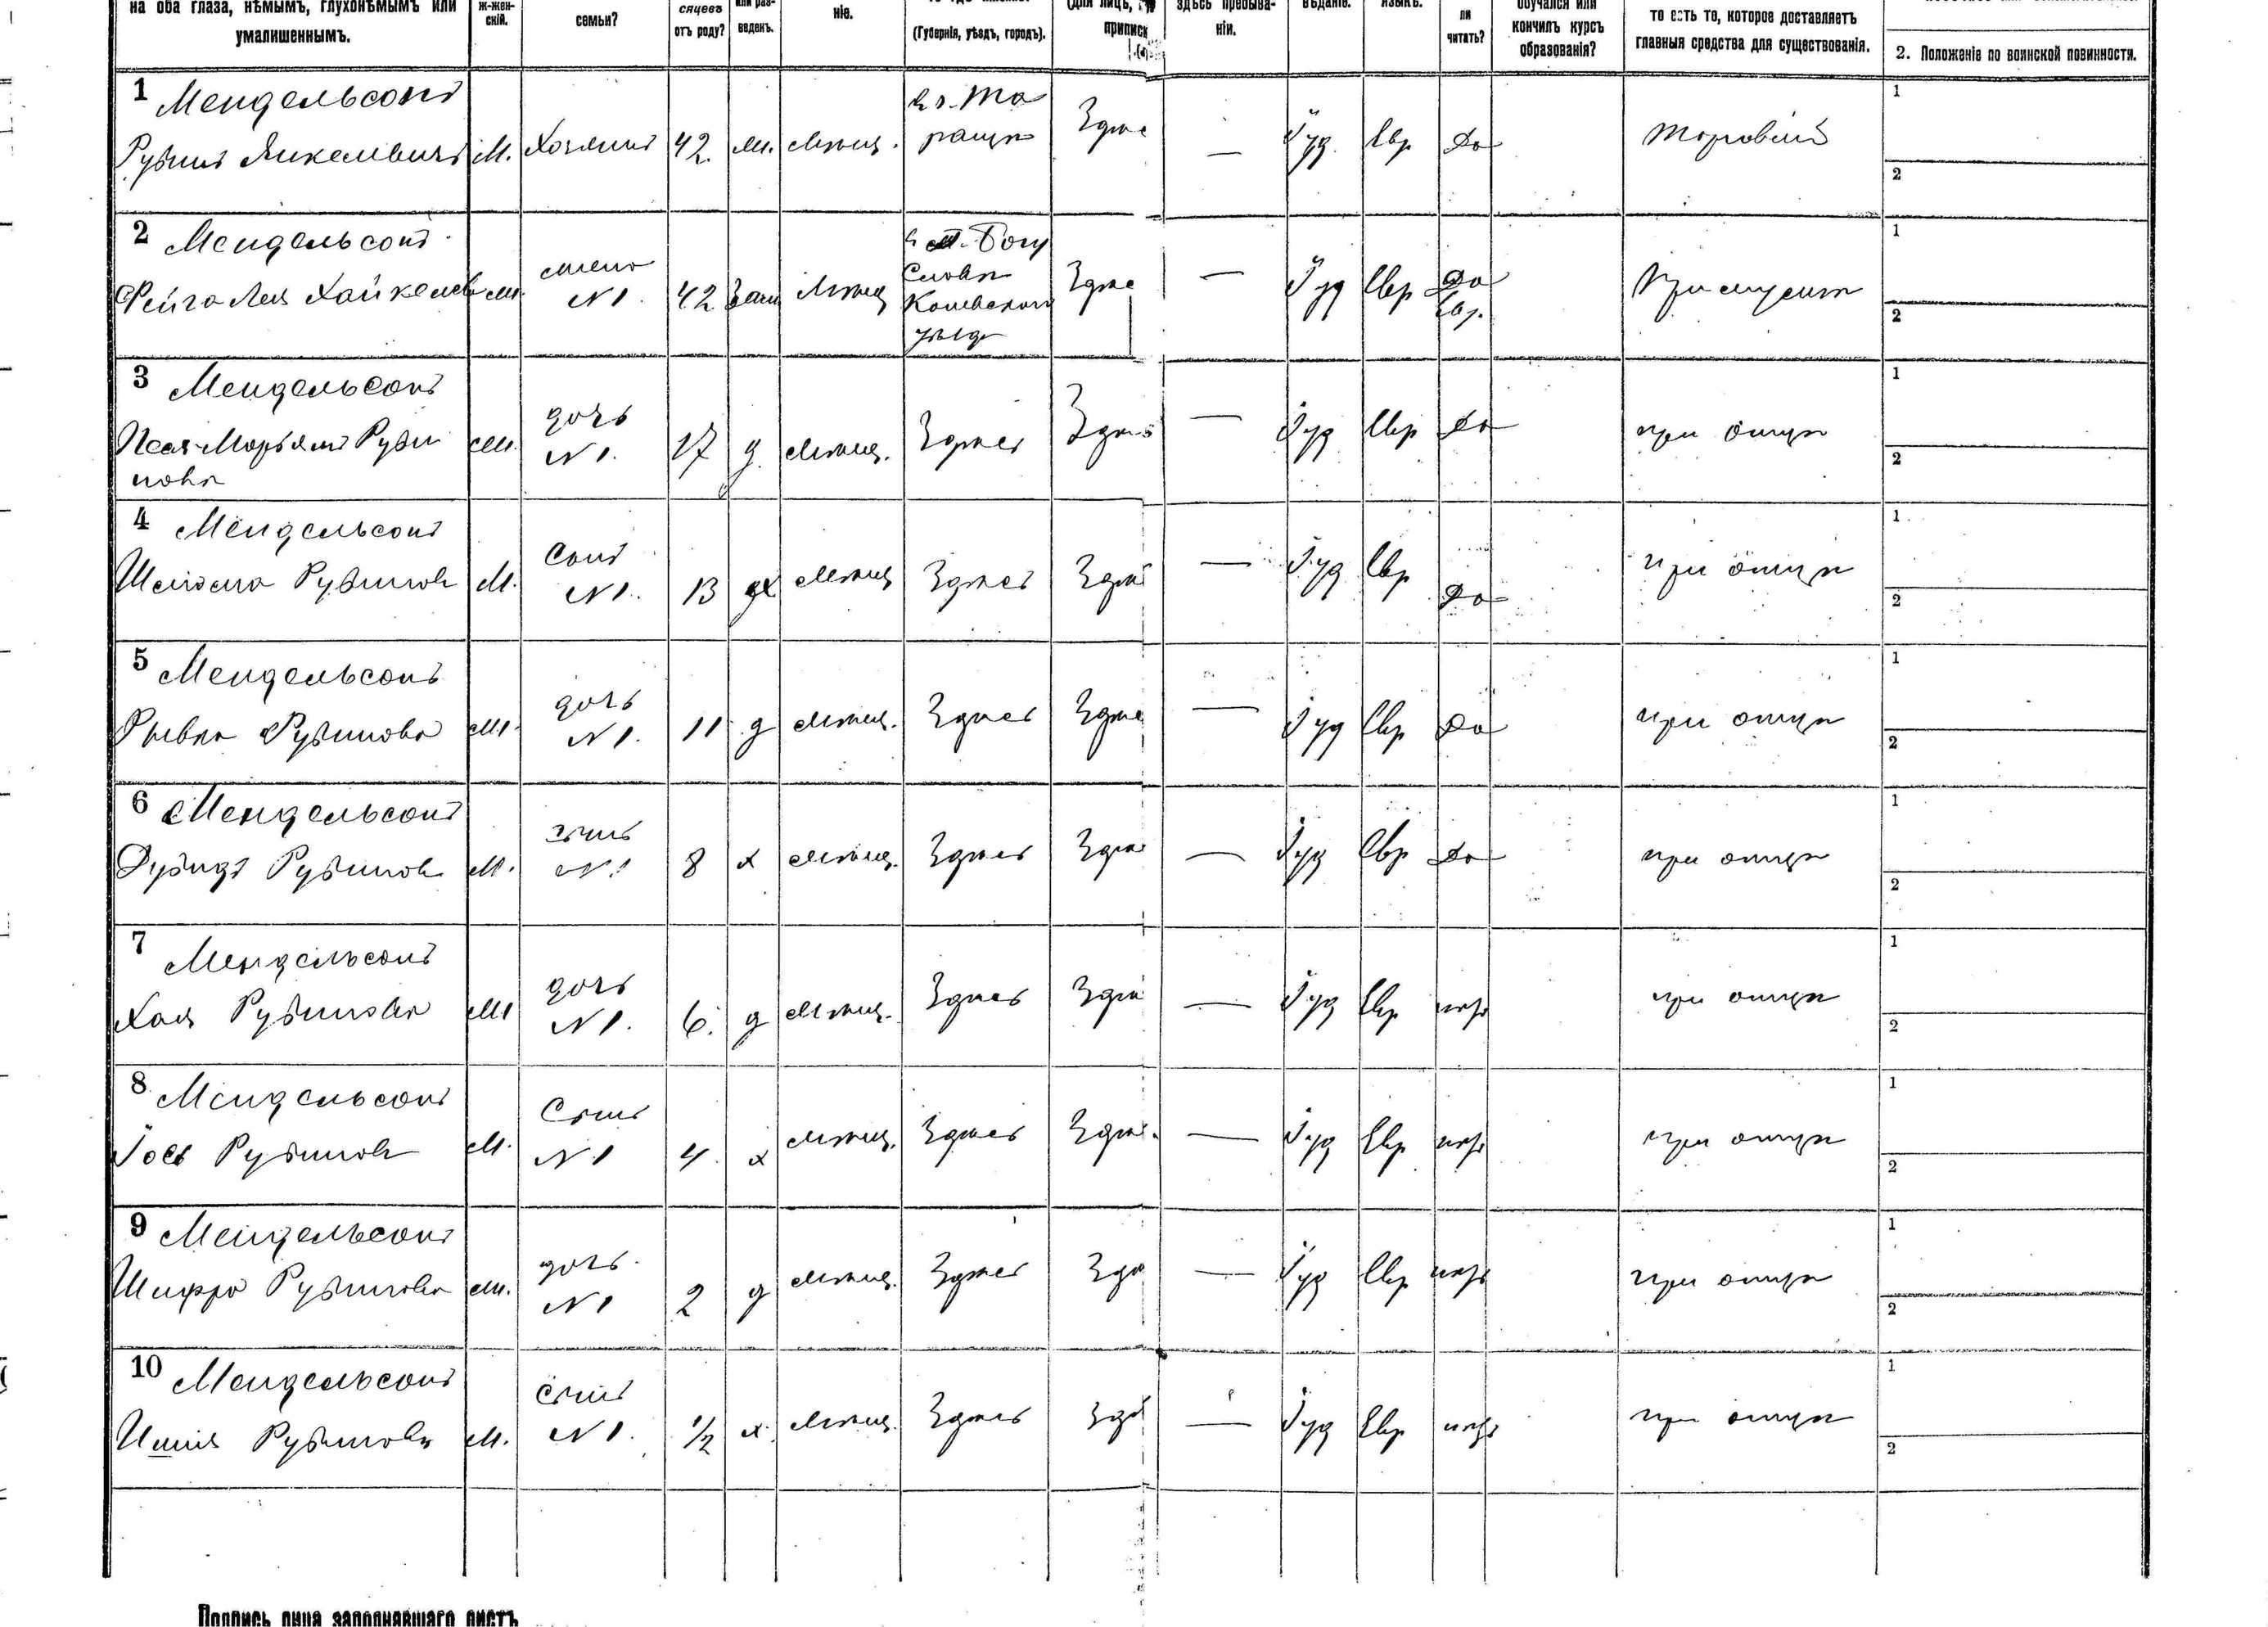 на оба глаза, нѣмымъ, глухонѣмымъ или
умалишеннымъ.
ж-жен-
скій.
семьи?
сяцевъ
отъ роду?
или раз-
веденъ.
ніе.
(Губернія, уѣздъ, городъ).
(для лицъ,
приписк
здѣсь пребыва-
ніи.
вѣданіе.
языкъ.
ли
читать?
обучался или
кончилъ курсъ
образованія?
то есть то, которое доставляетъ
главныя средства для существованія.
2. Положеніе по воинской повинности.
1 Мендельсонъ
Рубинъ Янкелевичъ М. Хозяинъ 42. м. мѣщ. Здѣс — Іуд. Евр да торговlя
1
2
2 Мендельсонъ
Фейга Лея Хайкелев м. жена №1. 42 Зам мѣщ Богу
слава
Каневского
уѣзда Здѣс — Іуд Евр да
Евр. при мужѣ
1
2
3 Мендельсонъ
Песя-Марьям Руби
нова м. дочь №1. 17 д. мѣщ. Здѣсь Здѣс — Іуд Евр да при отцѣ
1
2
4 Мендельсонъ
Рубинов М. Сынъ №1. 13 х мѣщ Здѣсь Здѣс — Іуд Евр да при отцѣ
1
2
5 Мендельсонъ
Рывка Рубинова м. дочь №1. 11 д мѣщ. Здѣсь Здѣс — Іуд Евр да при отцѣ
1
2
6 Мендельсонъ
Рубинов М. сынъ №1 8 х мѣщ. Здѣсь Здѣс — Іуд Евр да при отцѣ
1
2
7 Мендельсонъ
Хая Рубинова М дочь №1. 6. д мѣщ. Здѣсь Здѣс — Іуд Евр нѣт при отцѣ
1
2
8 Мендельсонъ
Іось Рубинов М. Сынъ №1 4. х мѣщ. Здѣсь Здѣс. — Іуд Евр нѣт при отцѣ
1
2
9 Мендельсонъ
Шифра Рубинова м. дочь №1 2 д мѣщ. Здѣсь Здѣ — Іуд Евр нѣт при отцѣ
1
2
10 Мендельсонъ
Рубиновъ М. сынъ №1. 1/2 х. мѣщ. Здѣсь Здѣ — Іуд Евр нѣт при отцѣ
1
2
Подпись лица заполнявшаго листъ